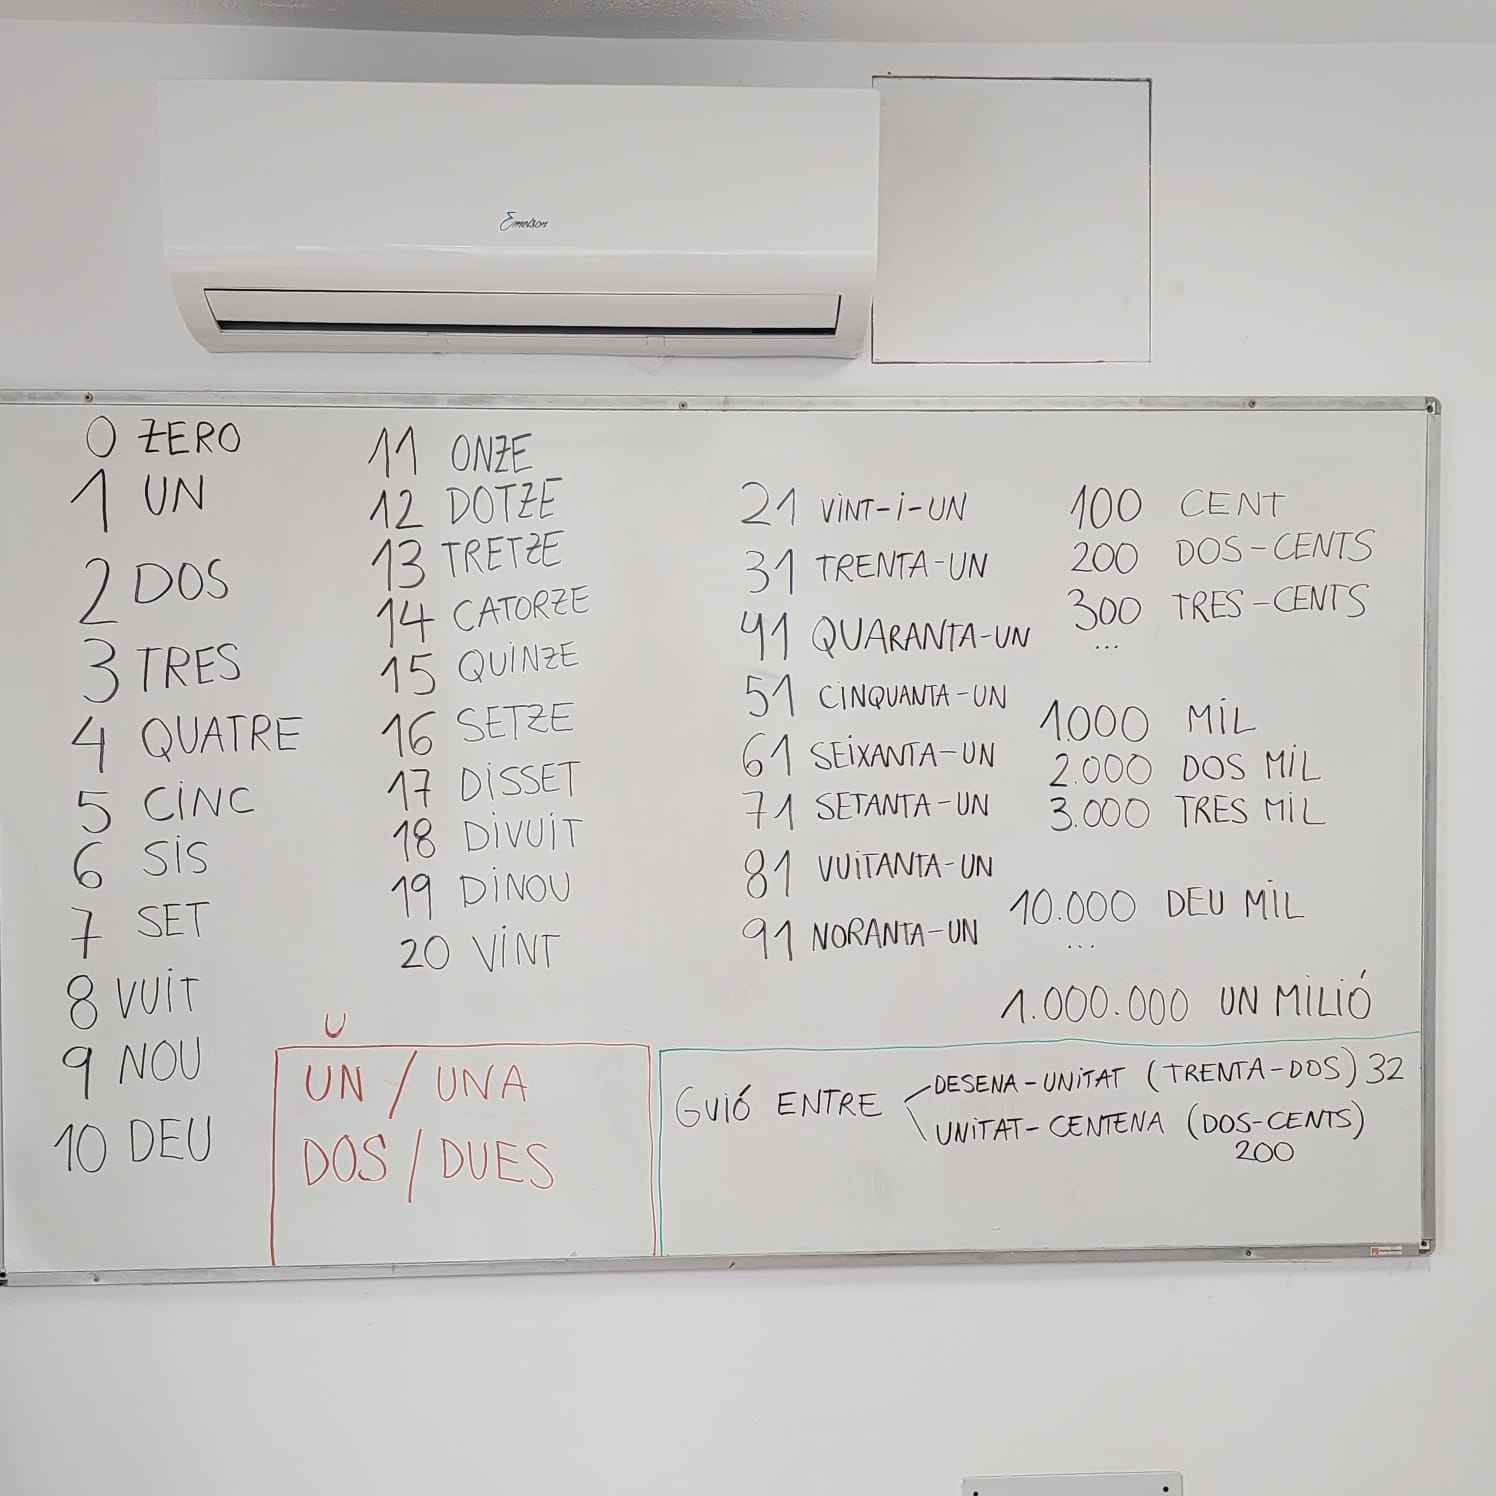 Emelson
0 ZERO
1 UN
2 DOS
3 TRES
4 QUATRE
5 CINC
6 SIS
7 SET
8 VUIT
9 NOU
10 DEU
11 ONZE
12 DOTZE
13 TRETZE
14 CATORZE
15 QUINZE
16 SETZE
17 DISSET
18 DIVUIT
19 DINOU
20 VINT
21 VINT-I-UN
31 TRENTA-UN
41 QUARANTA-UN
51 CINQUANTA-UN
61 SEIXANTA-UN
71 SETANTA-UN
81 VUITANTA-UN
91 NORANTA-UN
100 CENT
200 DOS-CENTS
300 TRES-CENTS
...
1.000 MIL
2.000 DOS MIL
3.000 TRES MIL
10.000 DEU MIL
...
1.000.000 UN MILIÓ
U
UN / UNA
DOS / DUES
GUIÓ ENTRE
DESENA-UNITAT (TRENTA-DOS) 32
UNITAT-CENTENA (DOS-CENTS)
200